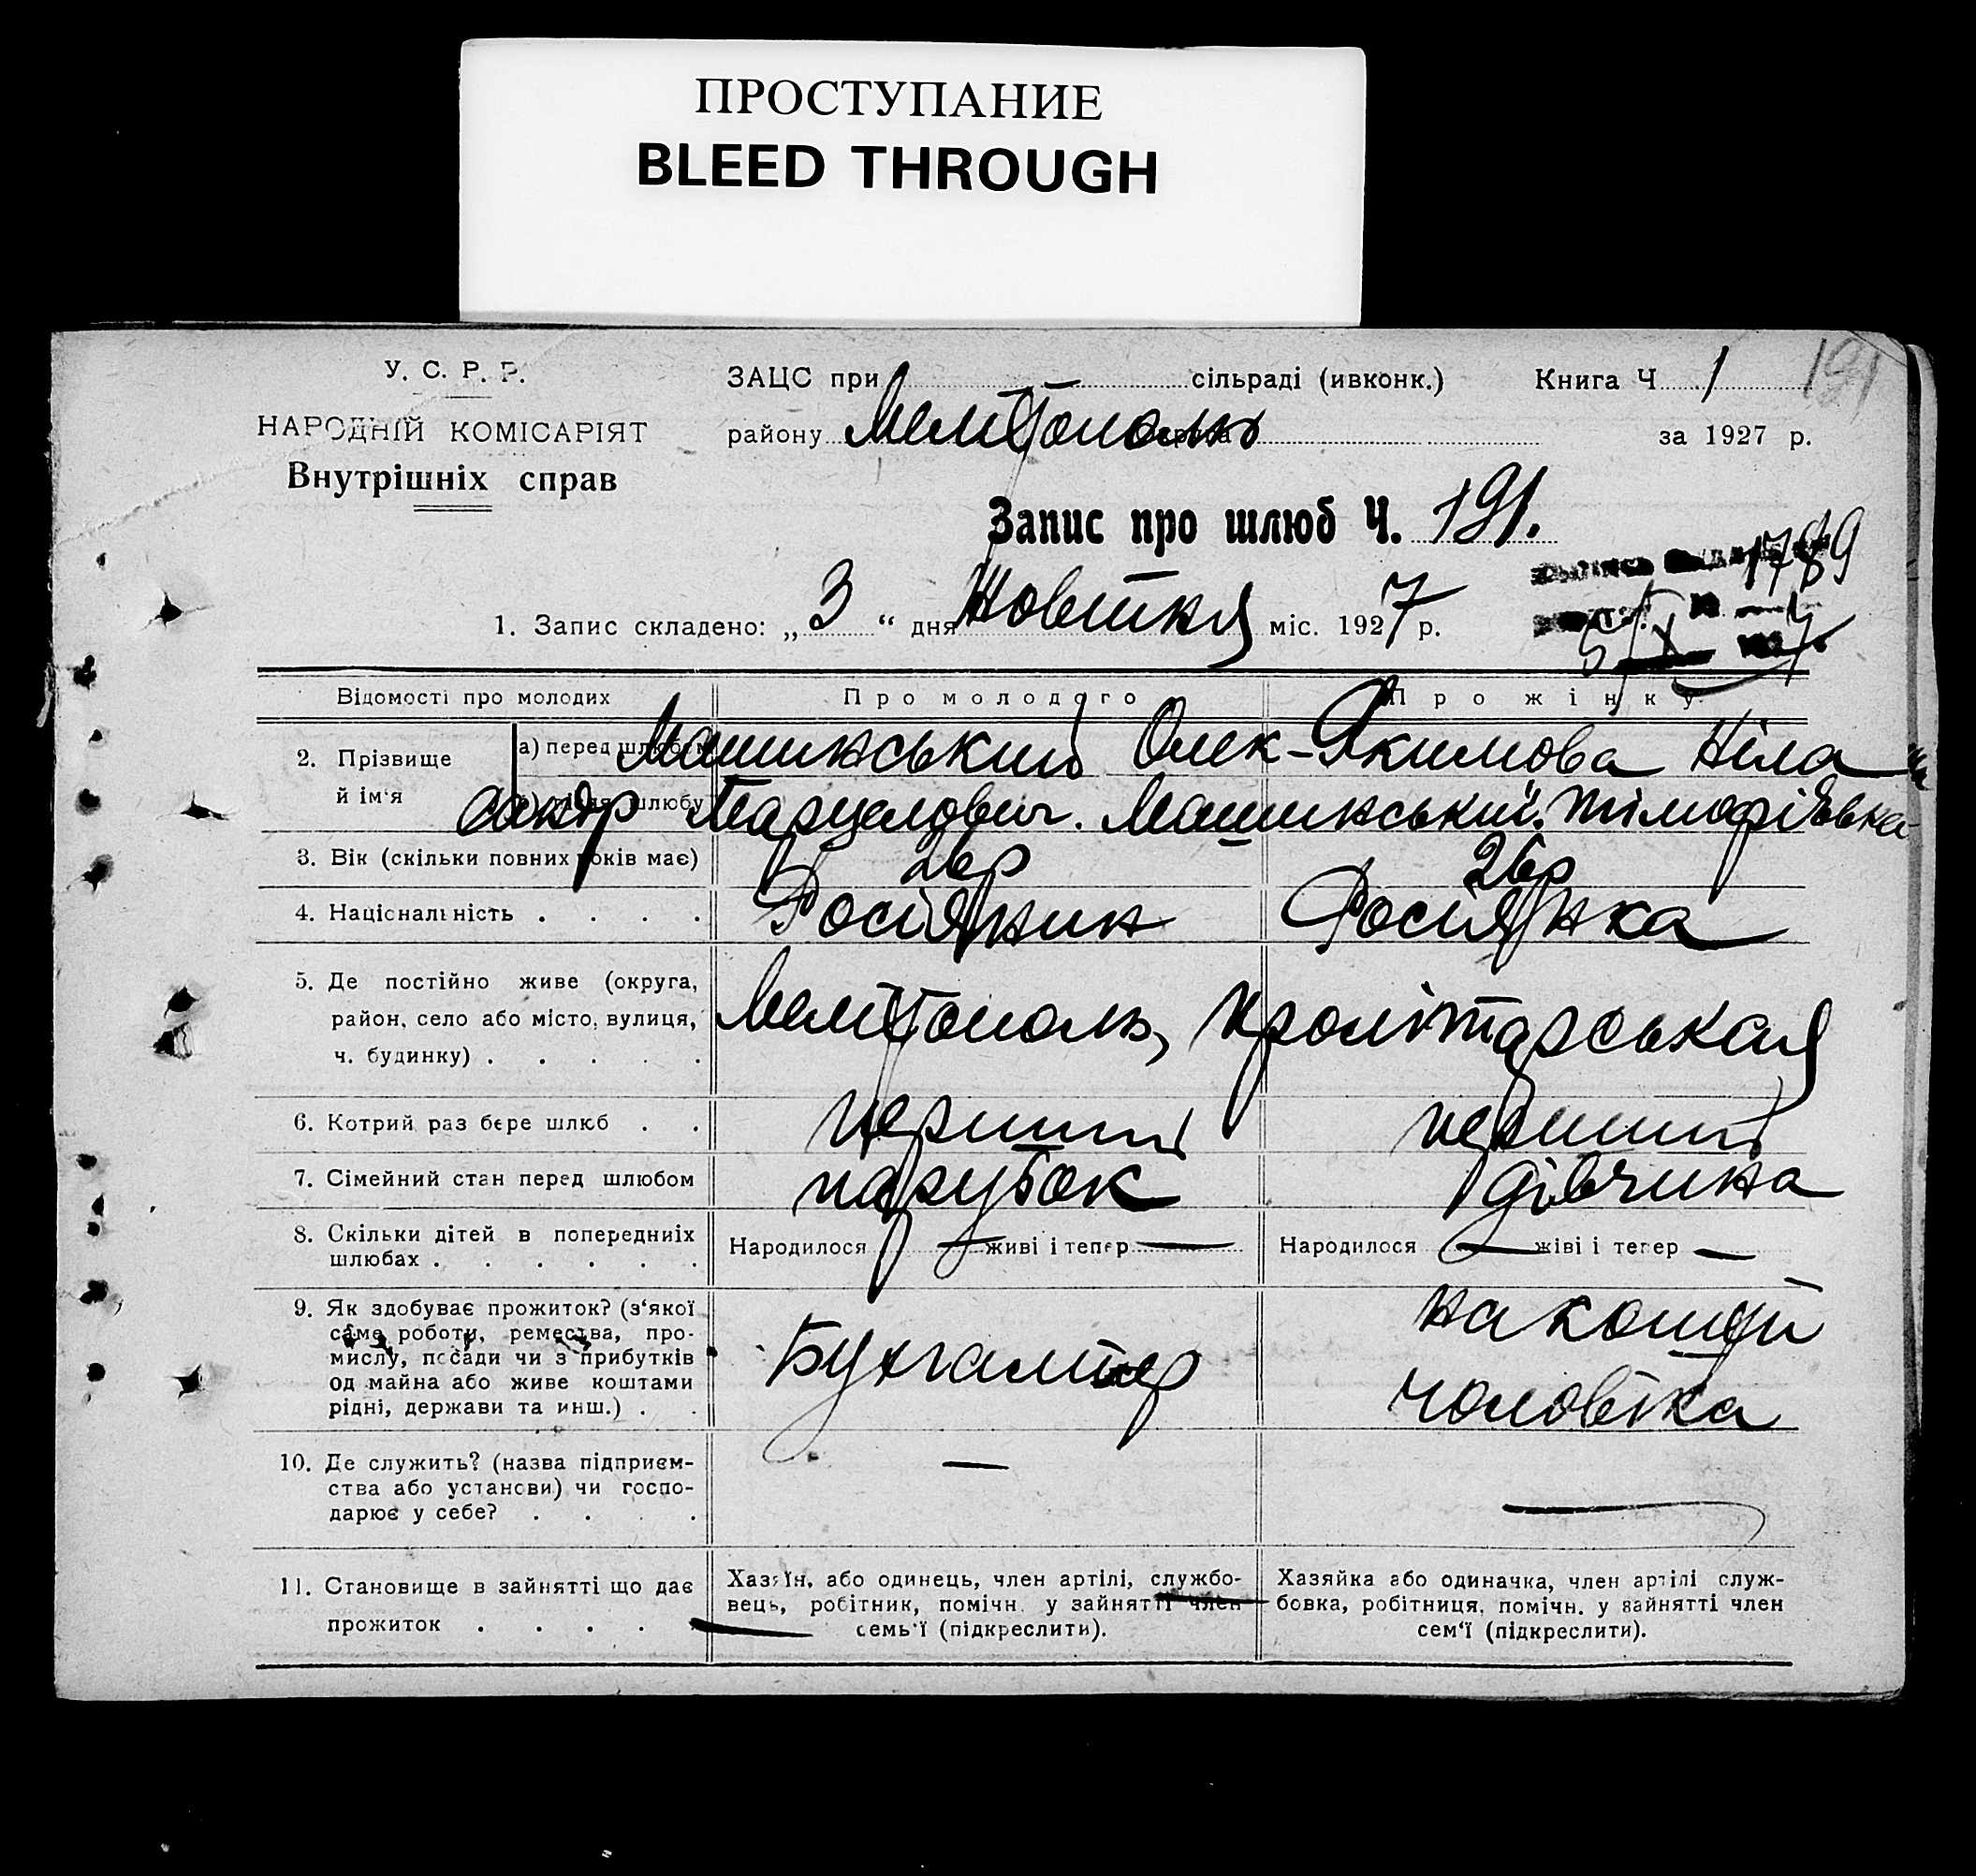 ПРОСТУПАНИЕ
BLEED THROUGH
У. С. Р. Р.
НАРОДНІЙ КОМІСАРІЯТ
Внутрішніх справ
ЗАЦС при сільраді (ивконк.) Книга Ч. 1 191
району Мелітополь за 1927 р.
Запис про шлюб Ч. 191.
1789
1. Запис складено: „ 3 “ дня Жовтня міс. 1927 р.
5/X 7
Відомості про молодих Про молодого Про жінку
2. Прізвище й ім‘я
а) перед шлюбом
шлюбу
Машинський Олек- Якимова Ніла
сандр Машинський.
3. Вік (скільки повних років має) 26р 26р
4. Національність . . . . Росіянин Росіянка
5. Де постійно живе (округа,
район, село або місто, вулиця,
ч. будинку) . . . . .
Мелітополь, Пролітарськая
6. Котрий раз бере шлюб . . перший перший
7. Сімейний стан перед шлюбом парубок дівчина
8. Скільки дітей в попередниіх
шлюбах . . . . . .
Народилося — живі і тепер — Народилося — жіві і тепер —
9. Як здобуває прожиток? (з‘якої
саме роботи, ремества, про-
мислу, посади чи з прибутків
од майна або живе коштами
рідні, держави та инш.) . .
Бухгалтер
на кошти
чоловіка
10. Де служить? (назва підприєм-
ства або установи) чи госпо-
дарює у себе? . . . .
— —
11. Становище в зайнятті що дає
прожиток . . . .
Хазяїн, або одинець, член артілі, службо-
вець, робітник, помічн. у зайнятті член
семь‘ї (підкреслити).
Хазяйка або одиначка, член артілі служ-
бовка, робітниця, помічн. у зайнятті член
сем‘ї (підкреслити).